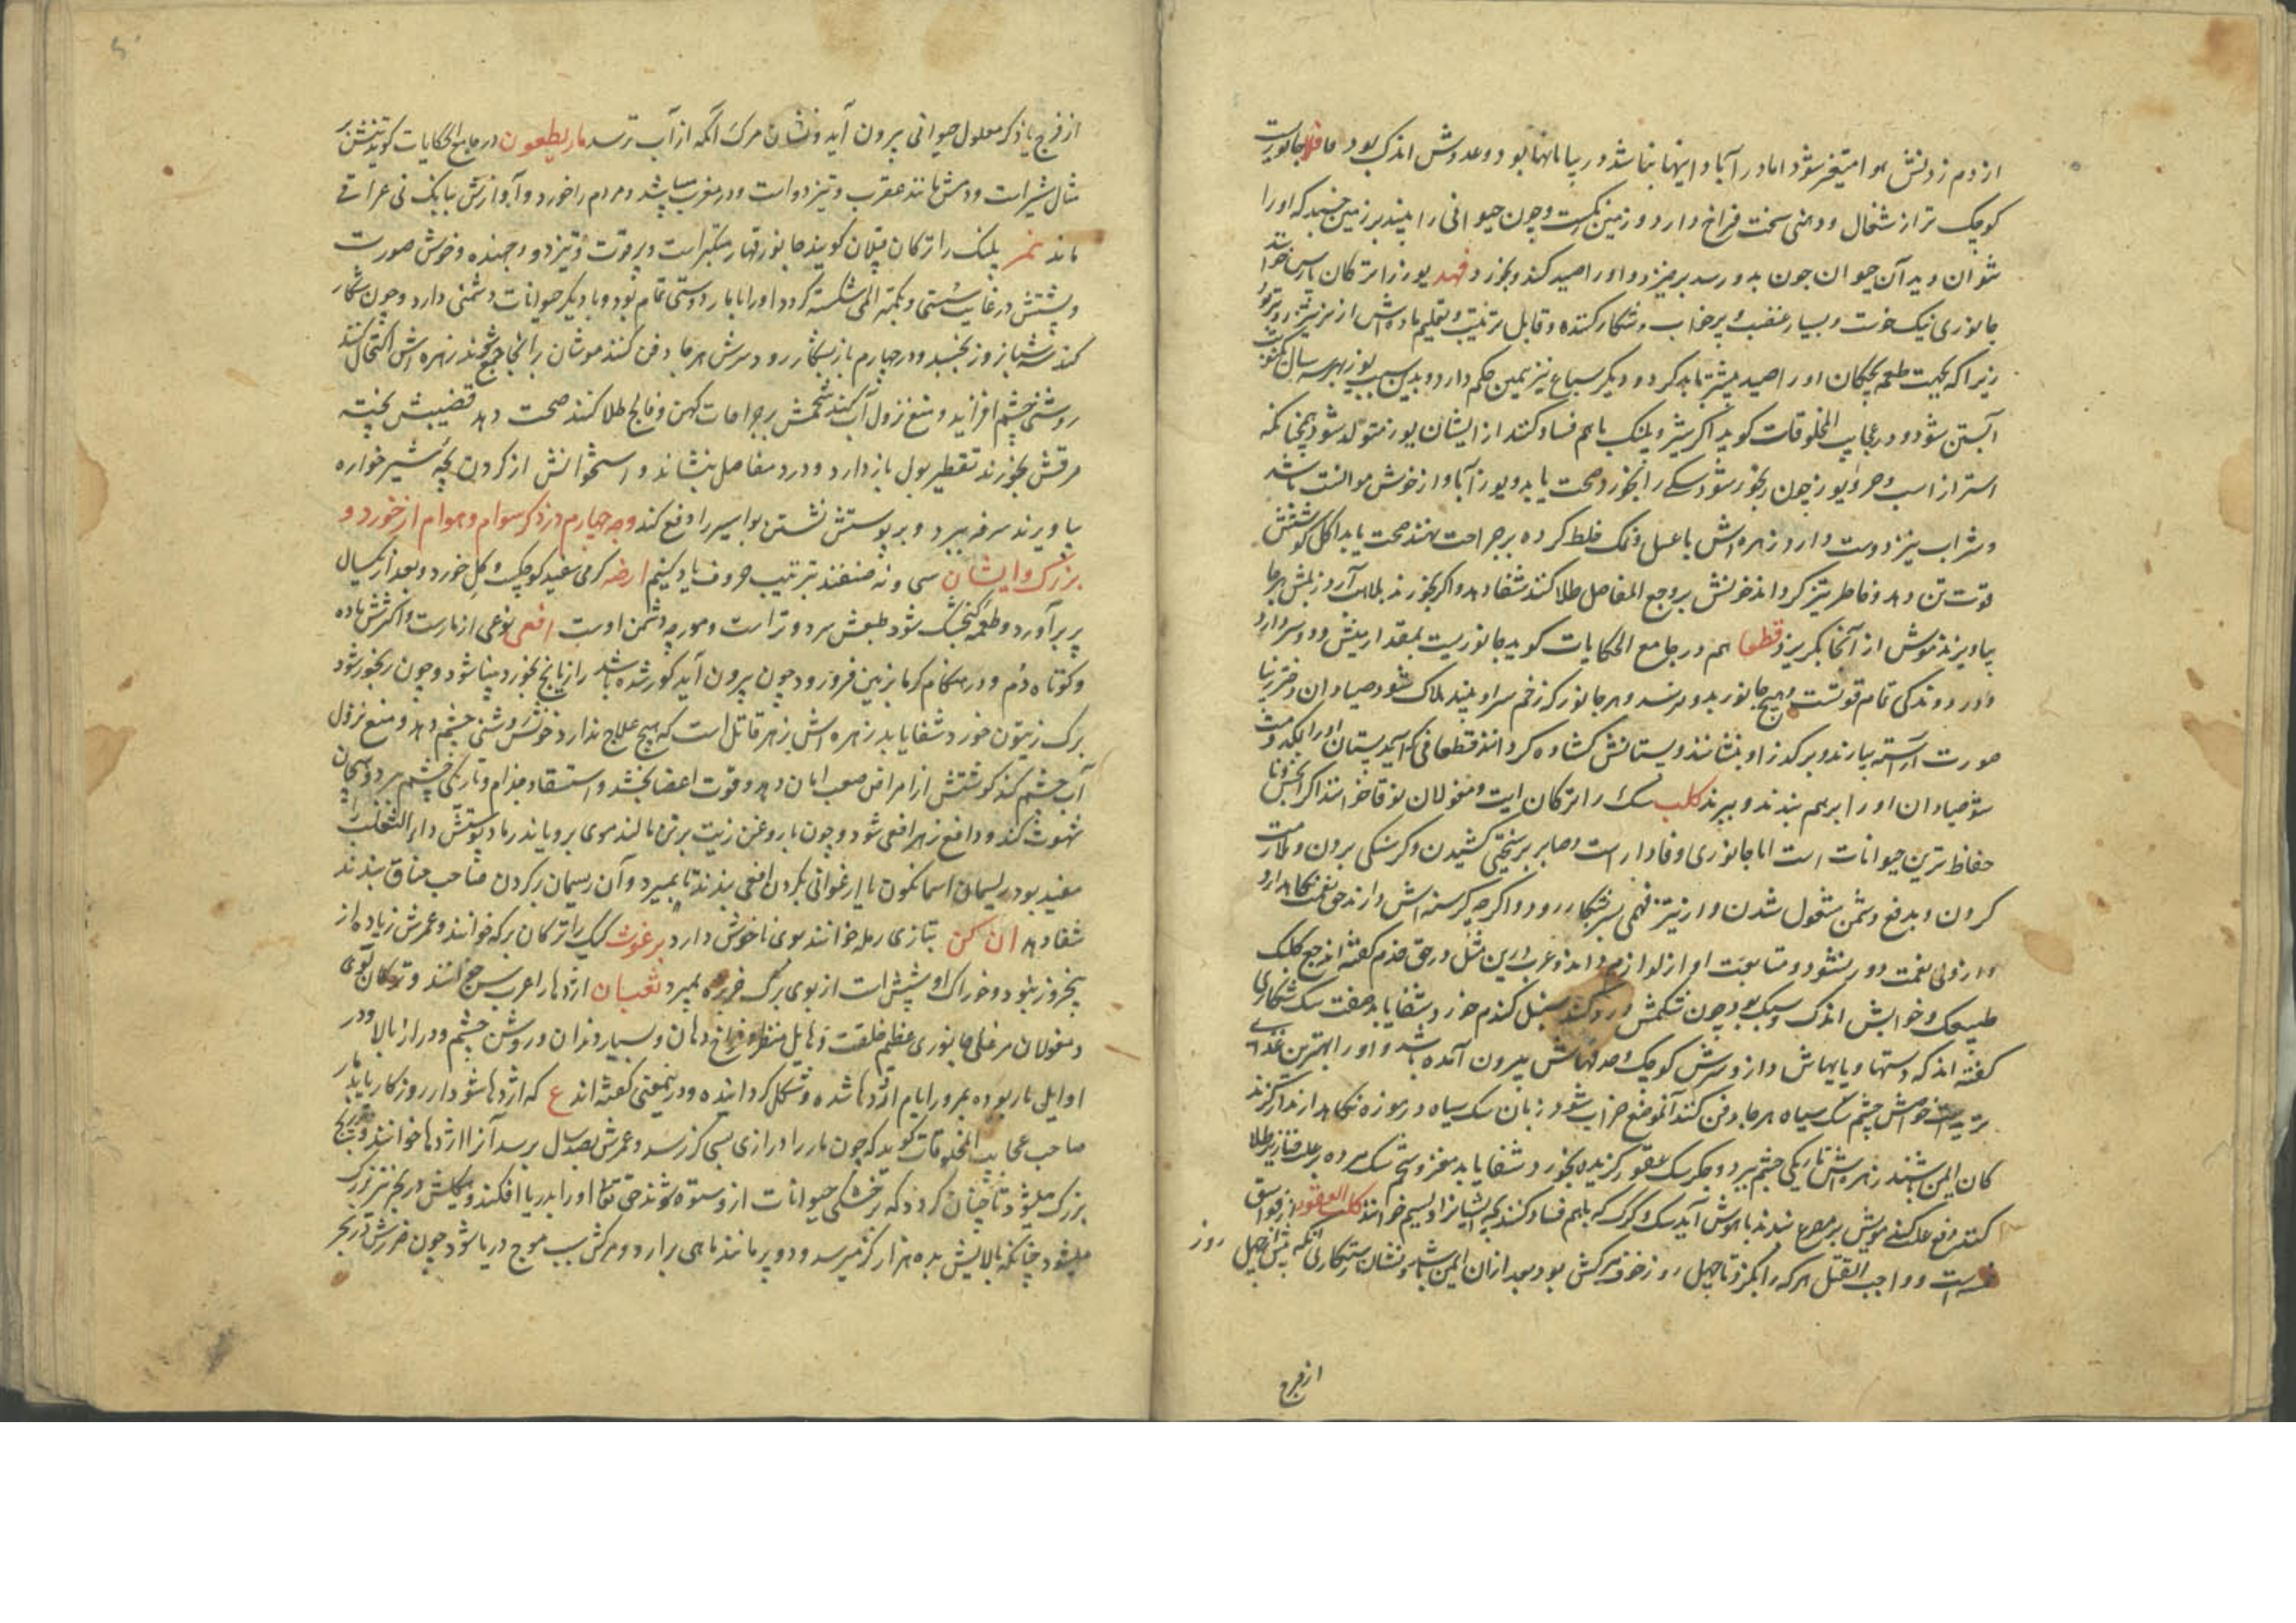 از دم زدنش هوا متغیر شود اما در آبادانیها نباشد در بیابانها بود و عددش اندک بود جانوریست
کوچک تر از شغال و دهنی سخت فراخ دارد و زمین و چون حیوانی را بیند بر زمین خسبد که او را
نتوان دید آن حیوان چون بدو رسد برخیزد و او را صید کند و بخورد فهد یوز را ترکان بارس خوانند
جانوری نیک خوست و بسیار غضب و پر خواب و شکار کننده و قابل تربیت و تعلیم ماده اش از نر تیزتر
زیرا که بجهت طعمه بچگان او را صید بیشتر باید کرد و دیگر سباع نیز همین حکم دارد و بدین سبب یوز بهر سال
آبستن شود و در عجایب المخلوقات گوید اگر شیر و پلنگ باهم فساد کنند از ایشان یوز متولد شود همچنانکه
استر از اسب و خر و یوز چون رنجور شود سگ را بخورد صحت یابد و یوز آباواز خوش موانست باشد
و شراب نیز دوست دارد زهره اش با عسل و نمک خلط کرده بر جراحت نهند صحت یابد اکل گوشتش
قوت تن دهد و خاطر تیز گرداند خونش بر وجع المفاصل طلا کنند شفا دهد و اگر بخورند بلاهت آرد
بیاویزند موش از آنجا بگریزد قطعا هم در جامع الحکایات گوید جانوریست بمقدار میش و دو سر دارد
و در دوندگی تمام قوتست و هیچ جانور بدو نرسد و هر جانور که زخم سر او بیند هلاک شود صیادان دختر زیبا
صورت آراسته بیارند و بر گذر او بنشانند و پستانش گشاده گردانند قطعا فی الحال آید پستان او را بمکد و مست
شود صیادان او را برهم بندند و ببرند کلب سگ را ترکان ایت و مغولان نوقا خوانند
حفاظ ترین حیوانات است اما جانوری وفادار است و صابر بر سختی کشیدن و گرسنگی بردن و ملازمت
کردن و بدفع دشمن مشغول شدن و از تیز فهمی بشکار رود و اگر چه گرسنه اش دارند حق نعمت نگاه دارد
و از ولی نعمت دور نشود و متابعت او از لوازم داند و عرب را این مثل در حق خدم گفته اند جع کلبک
طیبعک و خوابش اندک و سبک بود چون شکمش درد کند سنبل گندم خورد شفا یابد صفت سگ شکاری
گفته اند که دستها و پایهاش دراز و سرش کوچک و حدقهاش بیرون آمده باشد و او را بهترین غذای
ترید است خواص چشم سگ سیاه هر جا دفن کنند آن موضع خراب شود زبان سگ سیاه در موزه نگاه دارند
کان ایمن باشند زهره اش تاریکی چشم ببرد و جگر سگ عقور گزیده بخورد شفا یابد مغز و شحم سگ مرده بر علت خنازیر طلا
کنند نفع کند مویش بر مصروع بندند باهوش آید سگ و گرگ که باهم فساد کنند بچه ایشانرا دلسیم خوانند کلب العقور از فواسق
خمسه است و واجب القتل هر که را بگزد تا چهل روز خوف مرگش بود و بعد از آن ایمن باشد و نشان رستگاری آنکه پیش از چهل روز
از فرج
از فرج یا ذکر معلول حیوانی بیرون آید و نشان مرگ آنکه از آب ترسد ماریطعون در جامع الحکایات گوید
مثال شیر است و دمش مانند عقرب و تیز دو است و در مغرب میباشد و مردم را خورد و آوازش ببانک نی عراقی
ماند نمر پلنگ را ترکان قپلان گویند جانور قهار متکبر است و پر قوت و تیز دو و جهنده و خوش صورت
و پشتش در غایت سستی و بکمتر المی شکسته گردد او را با مار دوستی تمام بود و با دیگر حیوانات دشمنی دارد و چون شکار
کند سه شبانروز بخسبد و در چهارم باز بشکار رود سرش هر جا دفن کنند موشان را انجا جمع شوند زهره اش اکتحال کنند
روشنی چشم افزاید و منع نزول آب کند شحمش بر جراحات کهن و فالج طلا کنند صحت دهد قضیبش پخته
مرقش بخورند تقطیر بول باز دارد و درد مفاصل بنشاند و استخوانش از گردن بچه شیر خواره
بیاویزند سرفه ببرد و بر پوستش نشستن بواسیر را دفع کند وجه چهارم در ذکر سوام و هوام از خورد و
بزرگ و ایشان سی و نه صنفند بترتیب حروف یاد کنیم ارضه کرمی سفید کوچک و گل خورد و بعد از یکسال
پر برآورد و طعمه گنجشک شود طبعش سرد و تر است و مورچه دشمن اوست افعی نوعی از مارست و اکثرش ماده
و کوتاه دم و در هنگام گرما بزمین فرو رود چون بیرون آید کور شده باشد رازیانج بخورد بینا شود و چون رنجور شود
برگ زیتون خورد شفا یابد زهره اش زهر قاتل است که هیچ علاج ندارد خونش روشنی چشم دهد و منع نزول
آب چشم کند گوشتش از امراض صعب امان دهد و قوت اعضا بخشد و استسقا و جذام و تاریکی چشم ببرد و هیجان
شهوت کند و دافع زهر افعی شود و چون با روغن زیت بر تن مالند موی برویاند رماد پوستش داء الثعلب را
مفید بود ریسمان اسمانگون یا ارغوانی بگردن افعی بندند تا بمیرد و آن ریسمان بگردن صاحب خناق بندند
شفا دهد ان کن بتازی رمله خوانند بوی ناخوش دارد برغوث کیک را ترکان برکه خوانند و عمرش زیاده از
پنج روز نبود و خوراک او شپش است از بوی برگ خرزهره بمیرد ثعبان اژدها را عرب خوانند و ترکان لوی
و مغولان مرغلی جانوری عظیم خلقت و هایل منظر و فراخ دهان و بسیار دندان و روشن چشم و دراز بالا و در
اوایل مار بوده بمرور ایام اژدها شده و شکل گردانیده و در ینمعنی گفته اند ع که اژدها شود ار روزگار یابد مار
صاحب عجایب المخلوقات گوید که چون مار را درازی بسی گز رسد و عمرش بصد سال برسد آنرا اژدها خوانند و بتدریج
بزرگ میشود تا چنان گردد که در خشکی حیوانات از و ستوه شوند حق تعالی او را بدریا افکند و هیکلش در بحر نیز بزرگ
میشود چنانکه بالایش بده هزار گز میرسد و دو پر مانند ماهی برارد و حرکتش سبب موج دریا شود چون ضررش در بحر